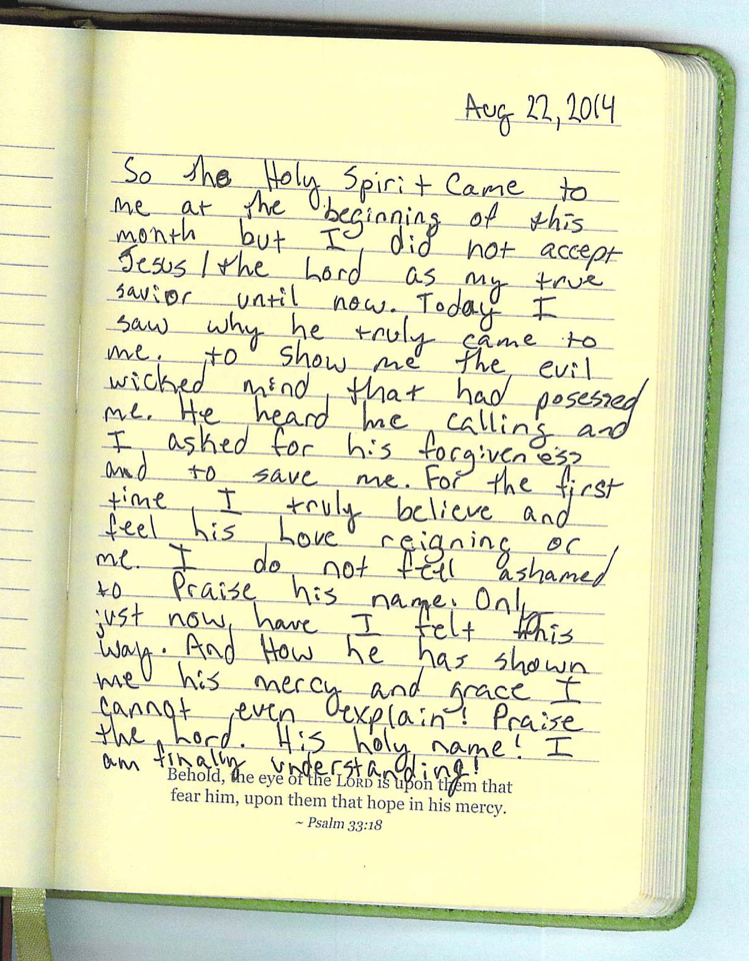 Aug 22, 2014
So the Holy Spirit Came to
me at the beginning of this
month but I did not accept
Jesus / the Lord as my true
savior until now. Today I
saw why he truly came to
me. to show me the evil
wicked mind that had posessed
me. He heard me calling and
I asked for his forgiveness
and to save me. For the first
time I truly believe and
feel his Love reigning or
me. I do not fell ashamed
to Praise his name. Only
just now have I felt this
way. And How he has shown
me his mercy and grace I
cannot even explain! Praise
the Lord. His holy name! I
am finally understanding!
Behold, the eye of the LORD is upon them that
fear him, upon them that hope in his mercy.
~ Psalm 33:18